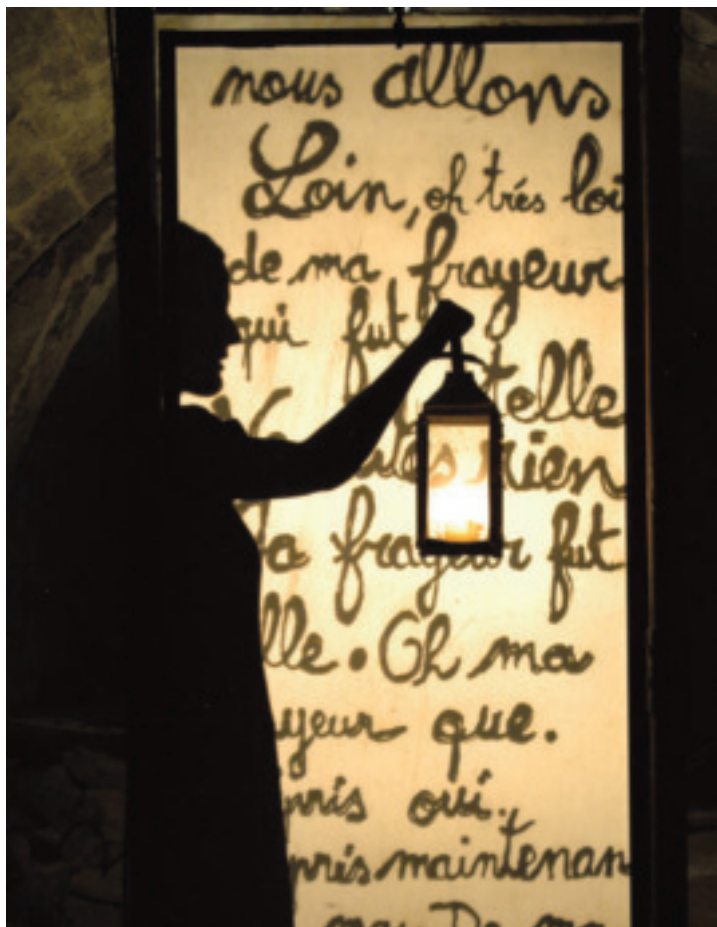 nous allons
Loin, oh trés loi
de ma frayeur
qui fut
telle
rien
la frayeur fut
lle. Oh ma
yeur que.
pris oui.
pris maintenan
ma De ma